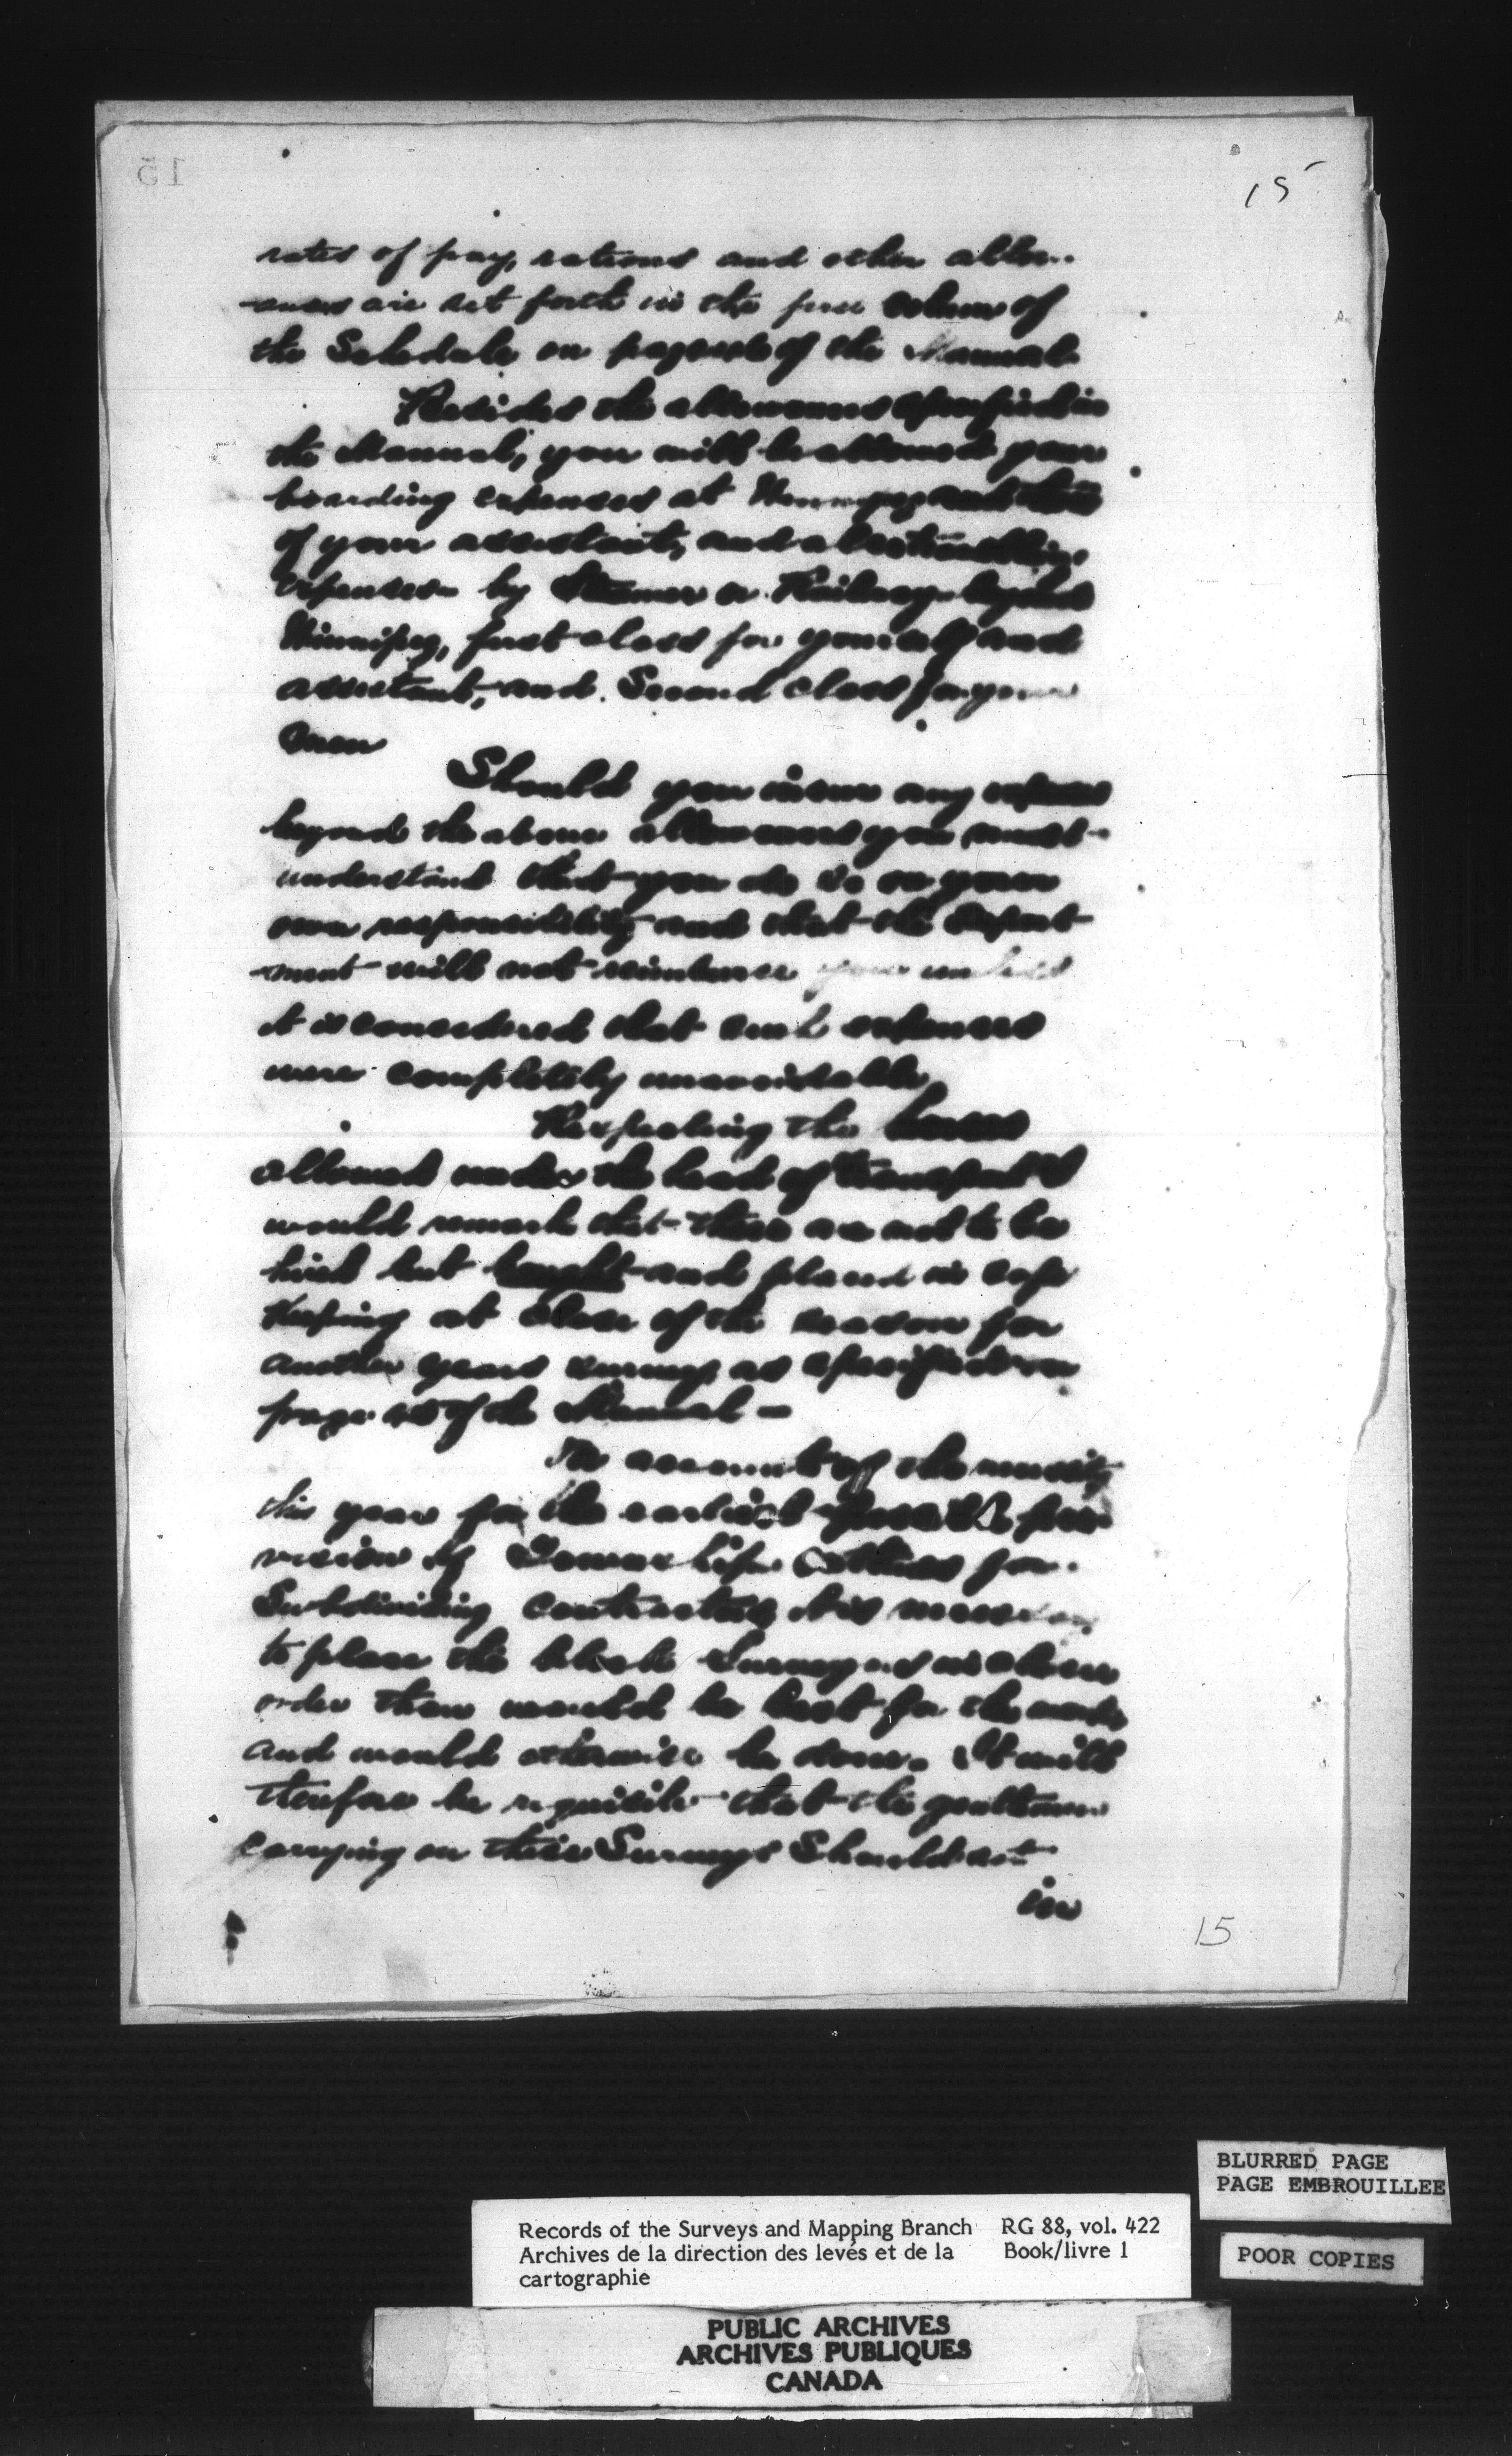 15
15
rates of pay, rations and other allow-
-ances are set forth in the column of
the Schedule on page of the Manual.
Besides the allowances specified in
the Manual, you will be allowed your
boarding expenses at Winnipeg and
of your assistant, and
expenses by Steamer or Railway beyond
Winnipeg, first class for yourself and
assistant, and Second class for your
men
Should you incur any expenses
beyond the above allowances you must
understand that you do so on your
own responsibility and that the Depart
-ment will not reimburse you unless
it is considered that such expenses
were completely unavoidable.
Respecting the
allowed under the head of transport I
would remark that these are not to be
hired but bought and placed in safe
keeping at close of the season for
another years surveys as specified on
page of the Manual -
On account of the necessity
this year for the earliest possible pro-
vision of Township outlines for
Subdividing contractors it is necessary
to place the block Surveyors
order than would be best for the work
and would otherwise be done. It will
therefore be requisite that the gentlemen
carrying on these Surveys Should act
in
15
BLURRED PAGE
PAGE EMBROUILLEE
Records of the Surveys and Mapping Branch RG 88, vol. 422
Archives de la direction des levés et de la Book/livre 1
cartographie
POOR COPIES
PUBLIC ARCHIVES
ARCHIVES PUBLIQUES
CANADA